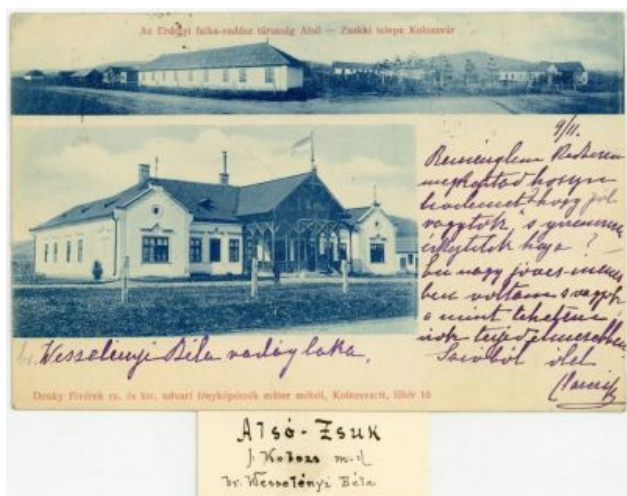 Az Erdélyi falka-vadász társaság Alsó — Zsukki telepe Kolozsvár
9/11.
Reménylem Kedvesem
megkaptad hosszu
levelemet? hogy jól
vagytok s
haza?
én nagy
ben voltam s vagyok
a mint lehetem,
irok terjedelmesebben.
Szivből ölel
br. Wesselényi Béla vadászlaka.
Dunky Fivérek cs. és kir. udvari fényképészek műter méből, Kolozsvártt, főtér 10
Alsó-Zsuk
br. Wesselényi Béla